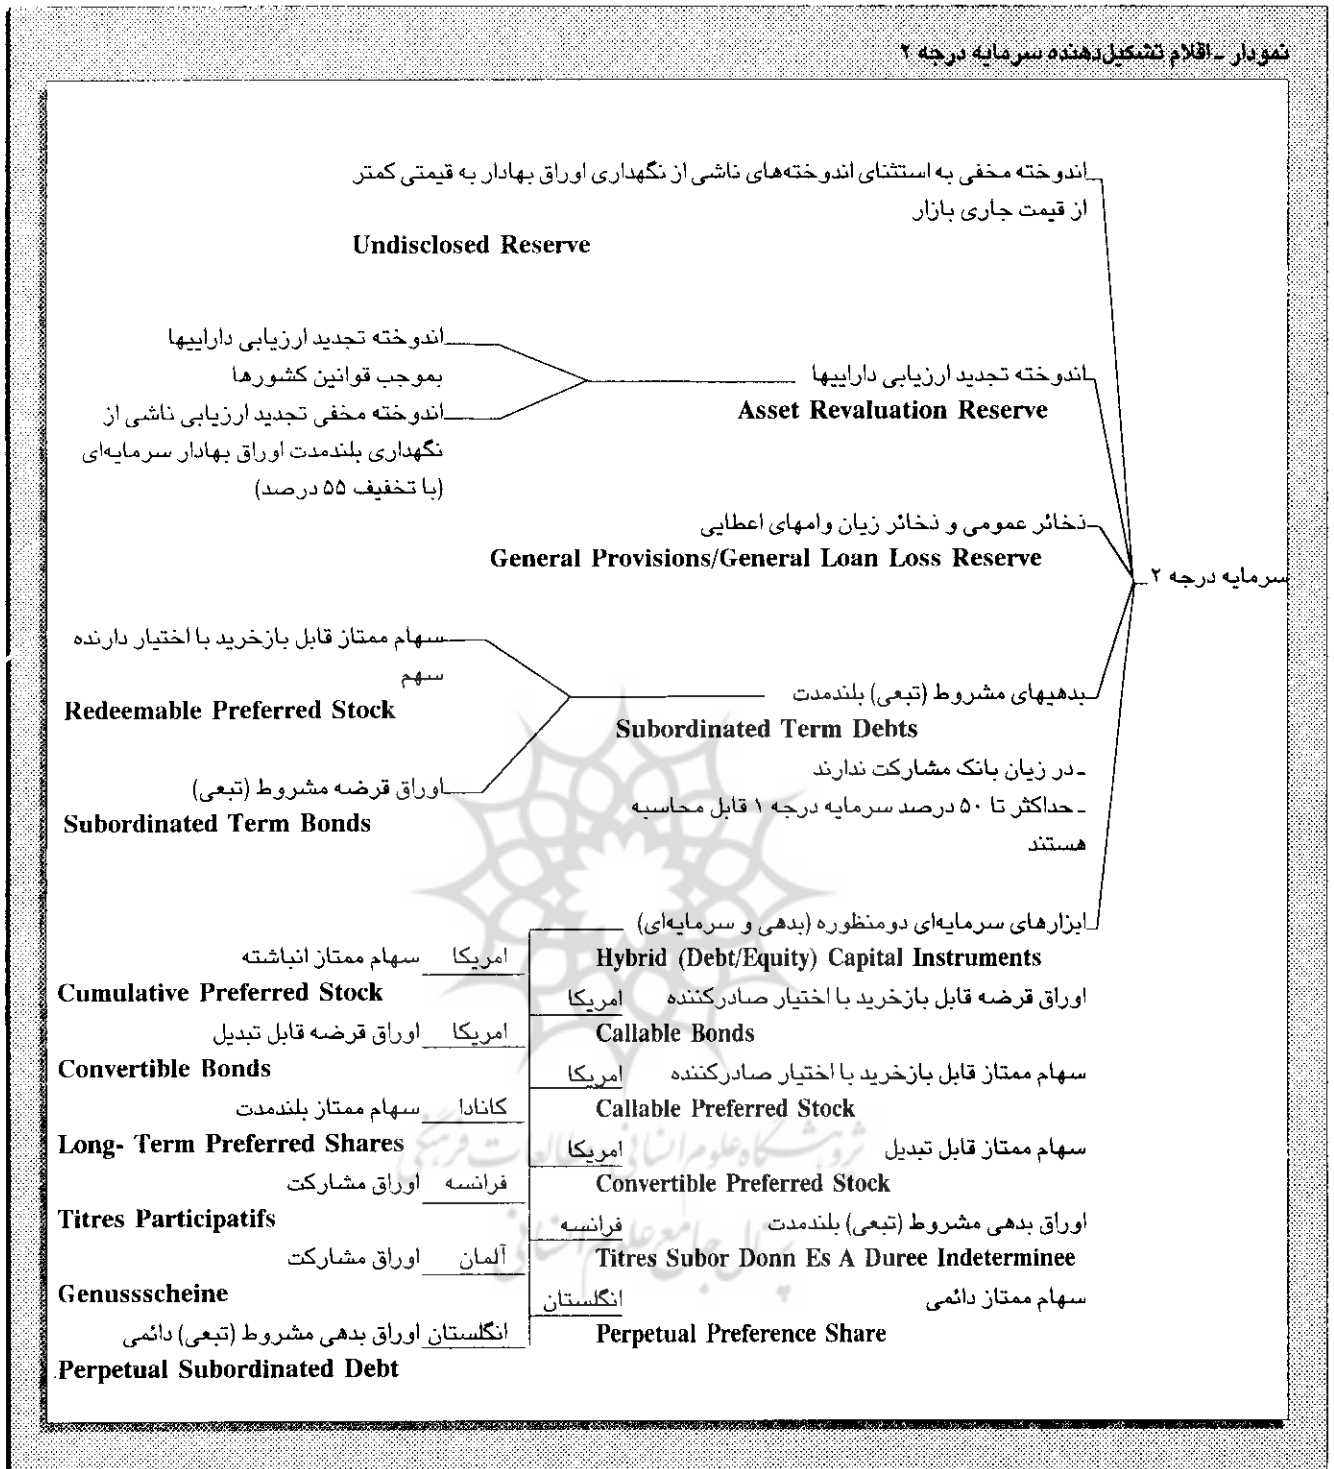 نمودار ـ اقلام تشکیل‌دهنده سرمایه درجه ۲
اندوخته مخفی به استثنای اندوخته‌های ناشی از نگهداری اوراق بهادار به قیمتی کمتر
از قیمت جاری بازار
Undisclosed Reserve
اندوخته تجدید ارزیابی داراییها
Asset Revaluation Reserve
اندوخته تجدید ارزیابی داراییها
بموجب قوانین کشورها
اندوخته مخفی تجدید ارزیابی ناشی از
نگهداری بلندمدت اوراق بهادار سرمایه‌ای
(با تخفیف ۵۵ درصد)
ذخائر عمومی و ذخائر زیان وامهای اعطایی
General Provisions/General Loan Loss Reserve
سرمایه درجه ۲
بدهیهای مشروط (تبعی) بلندمدت
Subordinated Term Debts
ـ در زیان بانک مشارکت ندارند
ـ حداکثر تا ۵۰ درصد سرمایه درجه ۱ قابل محاسبه
هستند
سهام ممتاز قابل بازخرید با اختیار دارنده
سهم
Redeemable Preferred Stock
اوراق قرضه مشروط (تبعی)
Subordinated Term Bonds
ابزارهای سرمایه‌ای دومنظوره (بدهی و سرمایه‌ای)
Hybrid (Debt/Equity) Capital Instruments
اوراق قرضه قابل بازخرید با اختیار صادرکننده امریکا
Callable Bonds
سهام ممتاز قابل بازخرید با اختیار صادرکننده امریکا
Callable Preferred Stock
سهام ممتاز قابل تبدیل امریکا
Convertible Preferred Stock
اوراق بدهی مشروط (تبعی) بلندمدت فرانسه
Titres Subor Donn Es A Duree Indeterminee
سهام ممتاز دائمی انگلستان
Perpetual Preference Share
امریکا سهام ممتاز انباشته
Cumulative Preferred Stock
امریکا اوراق قرضه قابل تبدیل
Convertible Bonds
کانادا سهام ممتاز بلندمدت
Long- Term Preferred Shares
فرانسه اوراق مشارکت
Titres Participatifs
آلمان اوراق مشارکت
Genussscheine
انگلستان اوراق بدهی مشروط (تبعی) دائمی
Perpetual Subordinated Debt
پژوهشگاه علوم انسانی و مطالعات فرهنگی
پرتال جامع علوم انسانی